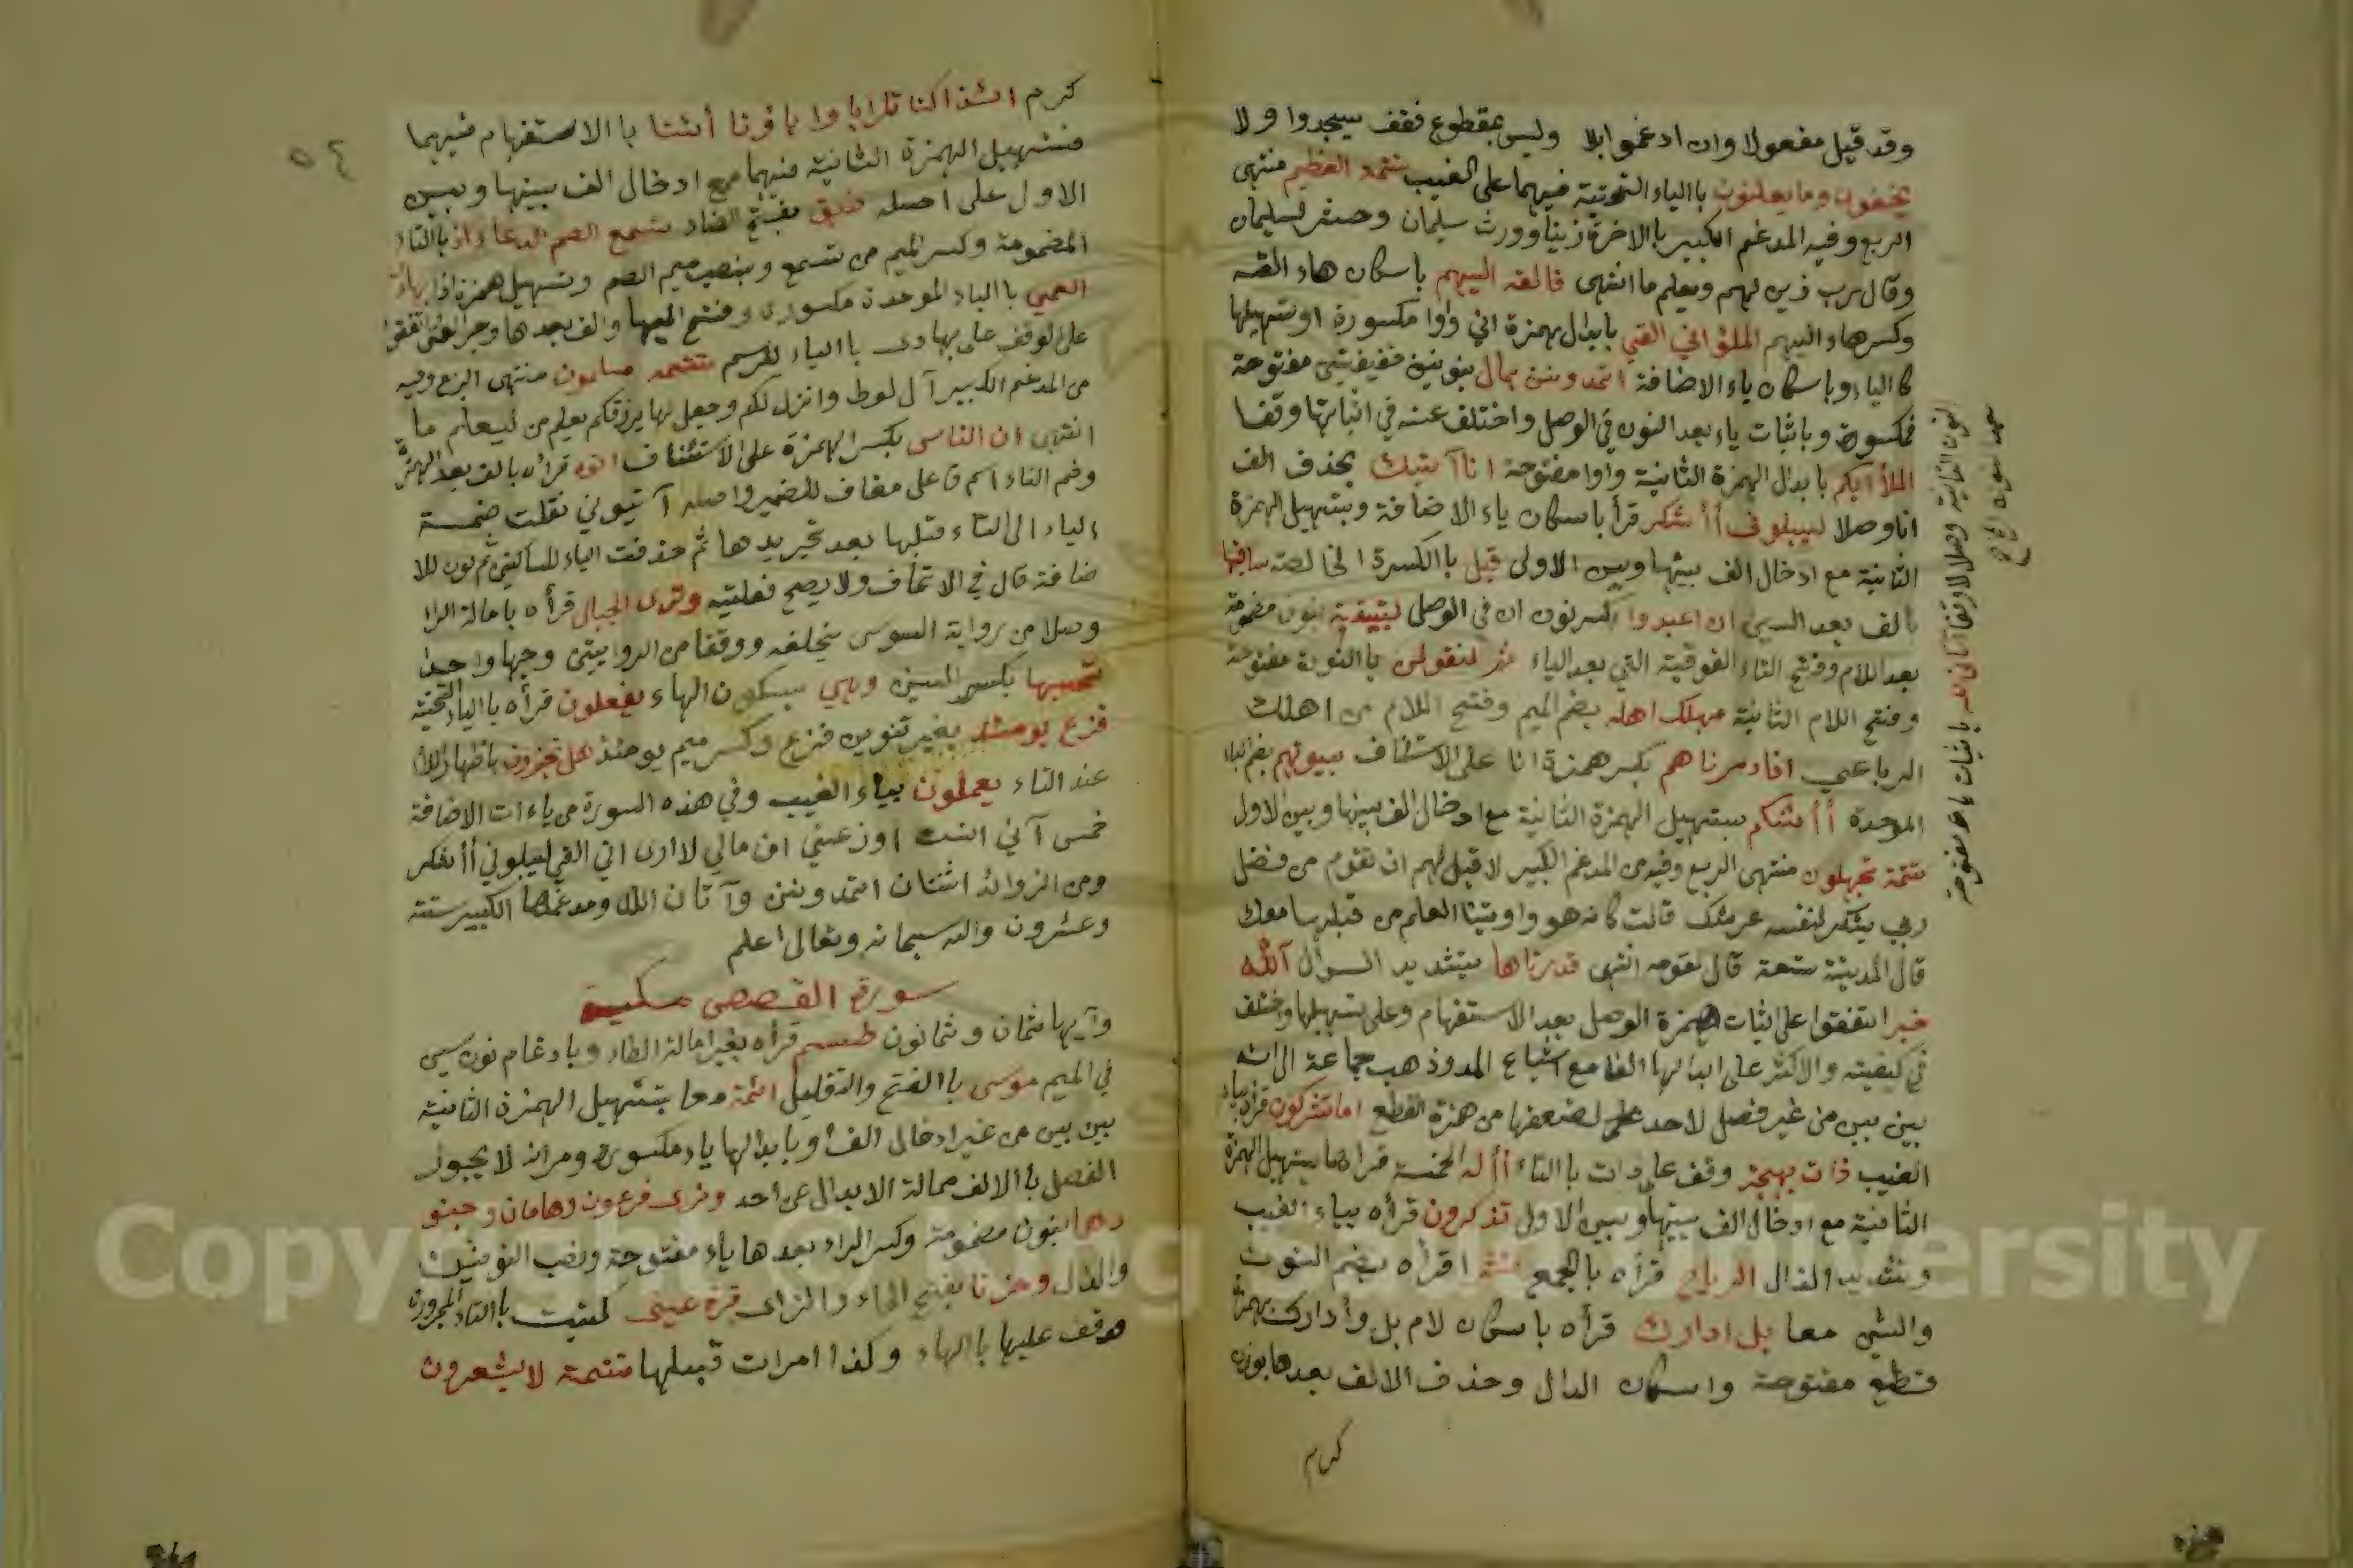 وقد قيل مفعولا وان ادغموا بلا وليس بمقطوع فقف يسجدوا ولا
يخفون وما يعلنون باالياء التحتية فيهما على الغيب تتمه العظيم منتهى
الربع وفيه المدغم الكبير باالاخرة زينا وورث سليمان وحشر لسليمان
وقال رب زين لهم ويعلم ما انتهى فالقه اليهم باسكان هاء القه
وكسر هاء اليهم الملؤ اني القي بابدال همزة اني واوا مكسورة او تسهيلها
كاالياء وباسكان ياء الاضافة اتمدونن بمال بنونين خفيفتين مفتوحة
فمكسورة وباثبات ياء بعد النون في الوصل واختلف عنه في اثباتها وقفا
الملأ أيكم بابدال الهمزة الثانية واوا مفتوحة انا آتيك بحذف الف
انا وصلا ليبلوني أأشكر قرأ باسكان ياء الاضافة وبتسهيل الهمزة
الثانية مع ادخال الف بينها وبين الاولى قيل باالكسرة الخالصة ساقيها
بالف بعد السين ان اعبدوا بكسر نون ان في الوصل لنبيتنه بنون مضمومة
بعد اللام وفتح التاء الفوقية التي بعد الياء ثم لنقولن باالنون مفتوحة
وفتح اللام الثانية مهلك اهله بضم الميم وفتح اللام من اهلك
الرباعي انا دمرناهم بكسر همزة انا على الاستئناف بيوتهم بضم الباء
الموحدة أأئنكم بتسهيل الهمزة الثانية مع ادخال الف بينها وبين الاول
تتمة تجهلون منتهى الربع وفيه من المدغم الكبير لا قبل لهم ان تقوم من فضل
ربي يشكر لنفسه عرشك قالت كانه هو واوتينا العلم من قبلها معك
قال المدينة تسعة قال لقومه انتهى قدرناها بتشديد الدال آلله
خير اتفقوا على اثبات همزة الوصل بعد الاستفهام وعلى تسهيلها واختلف
في كيفيته والاكثر على ابدالها الفا مع اشباع المد وذهب جماعة الى انه
بين بين من غير فصل لاحد لضعفها من همزة القطع اما تشركون قرأه بياء
الغيب ذات بهجة وقف على ذات باالتاء أإله الخمسة قراها بتسهيل الهمزة
الثانية مع ادخال الف بينها وبين الاولى تذكرون قرأه بياء الغيب
وتشديد الذال الرياح قرأه بالجمع نشرا قرأه بضم النون
والشين معا بل ادارك قرأه باسكان لام بل وأدارك بهمزة
قطع مفتوحة واسكان الدال وحذف الالف بعدها بوزن
كرم
النون الثانية وصلا لا وقفا آتان الله باثبات ياء مفتوحة
٥٤
كرم ائذا كنا ترابا واباؤنا أئننا باالاستفهام فيهما
فتسهيل الهمزة الثانية فيهما مع ادخال الف بينها وبين
الاول على اصله ضيق بفتح الضاد تسمع الصم الدعاء اذ باالتاء
المضمومة وكسر الميم من تسمع وبنصب ميم الصم وتسهيل همزة اذا بهاد
العمي باالباء الموحدة مكسورة وفتح الهاء والف بعدها وجر العمي اتفقوا
على الوقف على بهادي باالياء للرسم تتمه مسلمون منتهى الربع وفيه
من المدغم الكبير آل لوط وانزل لكم وجعل لها يرزقكم يعلم من ليعلم ما
انتهى ان الناس بكسر الهمزة على الاستئناف اتوه قرأه بالف بعد الهمزة
وضم التاء اسم فاعل مضاف للضمير واصله آتيوني نقلت ضمة
الياء الى التاء قبلها بعد تجريدها ثم حذفت الياء للساكنين ثم نون للا
ضافة قال في الاتحاف ولا يصح فعليته وترى الجبال قرأه بامالة الرا
وصلا من رواية السوسي بخلفه ووقفا من الروايتين وجها واحدا
تحسبها بكسر السين وهي بسكون الهاء يفعلون قرأه باالياء التحتية
فزع يومئذ بغير تنوين فزع وكسر ميم يومئذ هل تجزون باظهار اللام
عند التاء يعملون بياء الغيب وفي هذه السورة من ياءات الاضافة
خمس اني انست اوزعني ان مالي لا ارى اني القي ليبلوني أأشكر
ومن الزوائد اثنتان اتمدونن وآتان الله ومدغمها الكبير ستة
وعشرون والله سبحانه وتعالى اعلم
سورة القصص مكية
وآيها ثمان وثمانون طسم قرأه بغير امالة الطاء وبادغام نون سين
في الميم موسى باالفتح والتقليل ائمة معا بتسهيل الهمزة الثانية
بين بين من غير ادخال الف أو بابدالها ياء مكسورة ومر انه لا يجوز
الفصل باالالف حالة الابدال عن احد ونري فرعون وهامان وجنو
دهما بنون مضمومة وكسر الراء بعدها ياء مفتوحة ونصب النونين
والدال وحزنا بفتح الحاء والزاى قرة عين كتبت باالتاء المجرورة
وقف عليها باالهاء وكذا امرات قبلها تتمة لا يشعرون